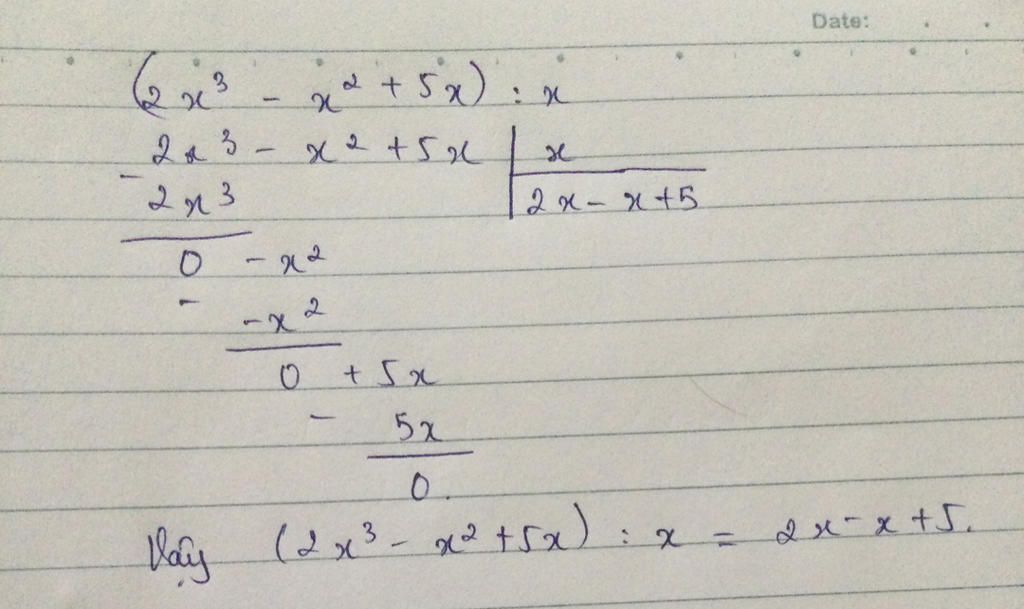 Date:
(2x³ - x² + 5x) : x
2x³ - x² + 5x | x
- 2x³ | 2x - x + 5
0 - x²
- - x²
0 + 5x
- 5x
0.
Vậy (2x³ - x² + 5x) : x = 2x - x + 5.